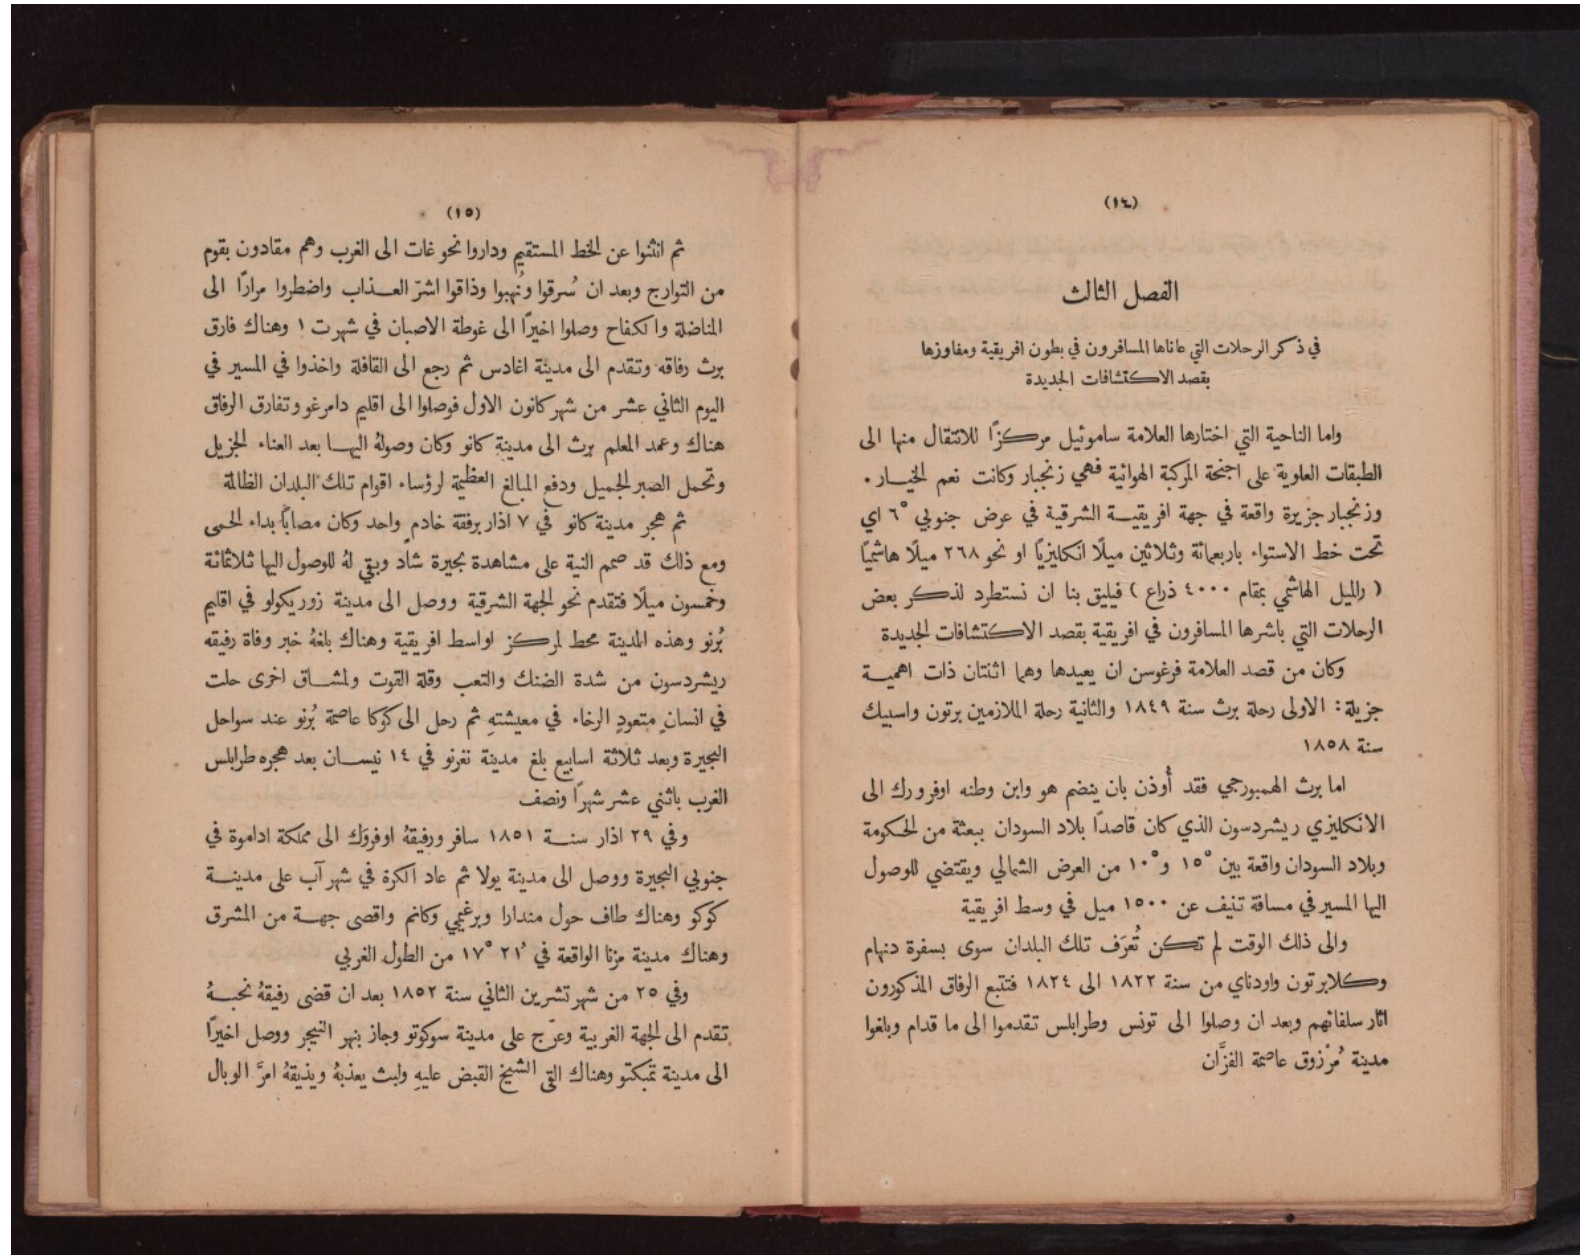 (١٤)
الفصل الثالث
في ذكر الرحلات التي عاناها المسافرون في بطون افريقية ومفاوزها
بقصد الاكتشافات الجديدة
واما الناحية التي اختارها العلامة ساموئيل مركزًا للانتقال منها الى
الطبقات العلوية على اجنحة المركبة الهوائية فهي زنجبار وكانت نعم الخيار ٠
وزنجبار جزيرة واقعة في جهة افريقية الشرقية في عرض جنوبي °٦ اي
تحت خط الاستواء باربعمائة وثلاثين ميلًا انكليزيًا او نحو ٢٦٨ ميلًا هاشميًا
( والميل الهاشمي بمقام ٤٠٠٠ ذراع ) فيليق بنا ان نستطرد لذكر بعض
الرحلات التي باشرها المسافرون في افريقية بقصد الاكتشافات الجديدة
وكان من قصد العلامة فرغوسن ان يعيدها وهما اثنتان ذات اهمية
جزيلة : الاولى رحلة برث سنة ١٨٤٩ والثانية رحلة الملازمين برتون واسبيك
سنة ١٨٥٨
اما برث الهمبورجي فقد أُوذن بان ينضم هو وابن وطنه اوفرورك الى
الانكليزي ريشردسون الذي كان قاصدًا بلاد السودان ببعثة من الحكومة
وبلاد السودان واقعة بين °١٥ و°١٠ من العرض الشمالي ويقتضي للوصول
اليها المسير في مسافة تنيف عن ١٥٠٠ ميل في وسط افريقية
والى ذلك الوقت لم تكن تُعرَف تلك البلدان سوى بسفرة دنهام
وكلابرتون واودناي من سنة ١٨٢٢ الى ١٨٢٤ فتتبع الرفاق المذكورون
اثار سلفائهم وبعد ان وصلوا الى تونس وطرابلس تقدموا الى ما قدام وبلغوا
مدينة مُرْزوق عاصمة الفزَّان
(١٥)
ثم انثنوا عن الخط المستقيم وداروا نحو غات الى الغرب وهم مقادون بقوم
من التوارج وبعد ان سُرقوا ونُهبوا وذاقوا اشرّ العذاب واضطروا مرارًا الى
المناضلة والكفاح وصلوا اخيرًا الى غوطة الاصبان في شهرت ١ وهناك فارق
برث رفاقه وتقدم الى مدينة اغادس ثم رجع الى القافلة واخذوا في المسير في
اليوم الثاني عشر من شهر كانون الاول فوصلوا الى اقليم دامرغو وتفارق الرفاق
هناك وعمد المعلم برث الى مدينة كانو وكان وصولهُ اليها بعد العناء الجزيل
وتحمل الصبر الجميل ودفع المبالغ العظيمة لرؤساء اقوام تلك البلدان الظالمة
ثم هجر مدينة كانو في ٧ اذار برفقة خادم واحد وكان مصابًا بداء الحمى
ومع ذلك قد صمم النية على مشاهدة بحيرة شاد وبقي لهُ للوصول اليها ثلاثمائة
وخمسون ميلًا فتقدم نحو الجهة الشرقية ووصل الى مدينة زوريكولو في اقليم
بُرنو وهذه المدينة محط لمركز اواسط افريقية وهناك بلغهُ خبر وفاة رفيقه
ريشردسون من شدة الضنك والتعب وقلة القوت ولمشاق اخرى حلت
في انسانٍ متعودٍ الرخاء في معيشتهِ ثم رحل الى كوكا عاصمة بُرنو عند سواحل
البحيرة وبعد ثلاثة اسابيع بلغ مدينة نغرنو في ١٤ نيسان بعد هجره طرابلس
الغرب باثني عشر شهرًا ونصف
وفي ٢٩ اذار سنة ١٨٥١ سافر ورفيقهُ اوفروَك الى مملكة اداموة في
جنوبي البحيرة ووصل الى مدينة يولا ثم عاد الكرة في شهر آب على مدينة
كوكو وهناك طاف حول مندارا وبرغيمي وكانم واقصى جهة من المشرق
وهناك مدينة مزنا الواقعة في ٢١َ °١٧ من الطول الغربي
وفي ٢٥ من شهر تشرين الثاني سنة ١٨٥٢ بعد ان قضى رفيقهُ نحبهُ
تقدم الى الجهة الغربية وعرّج على مدينة سوكوتو وجاز بنهر النيجر ووصل اخيرًا
الى مدينة تمبكتو وهناك القى الشيخ القبض عليهِ ولبث يعذبهُ ويذيقهُ امرَّ الوبال